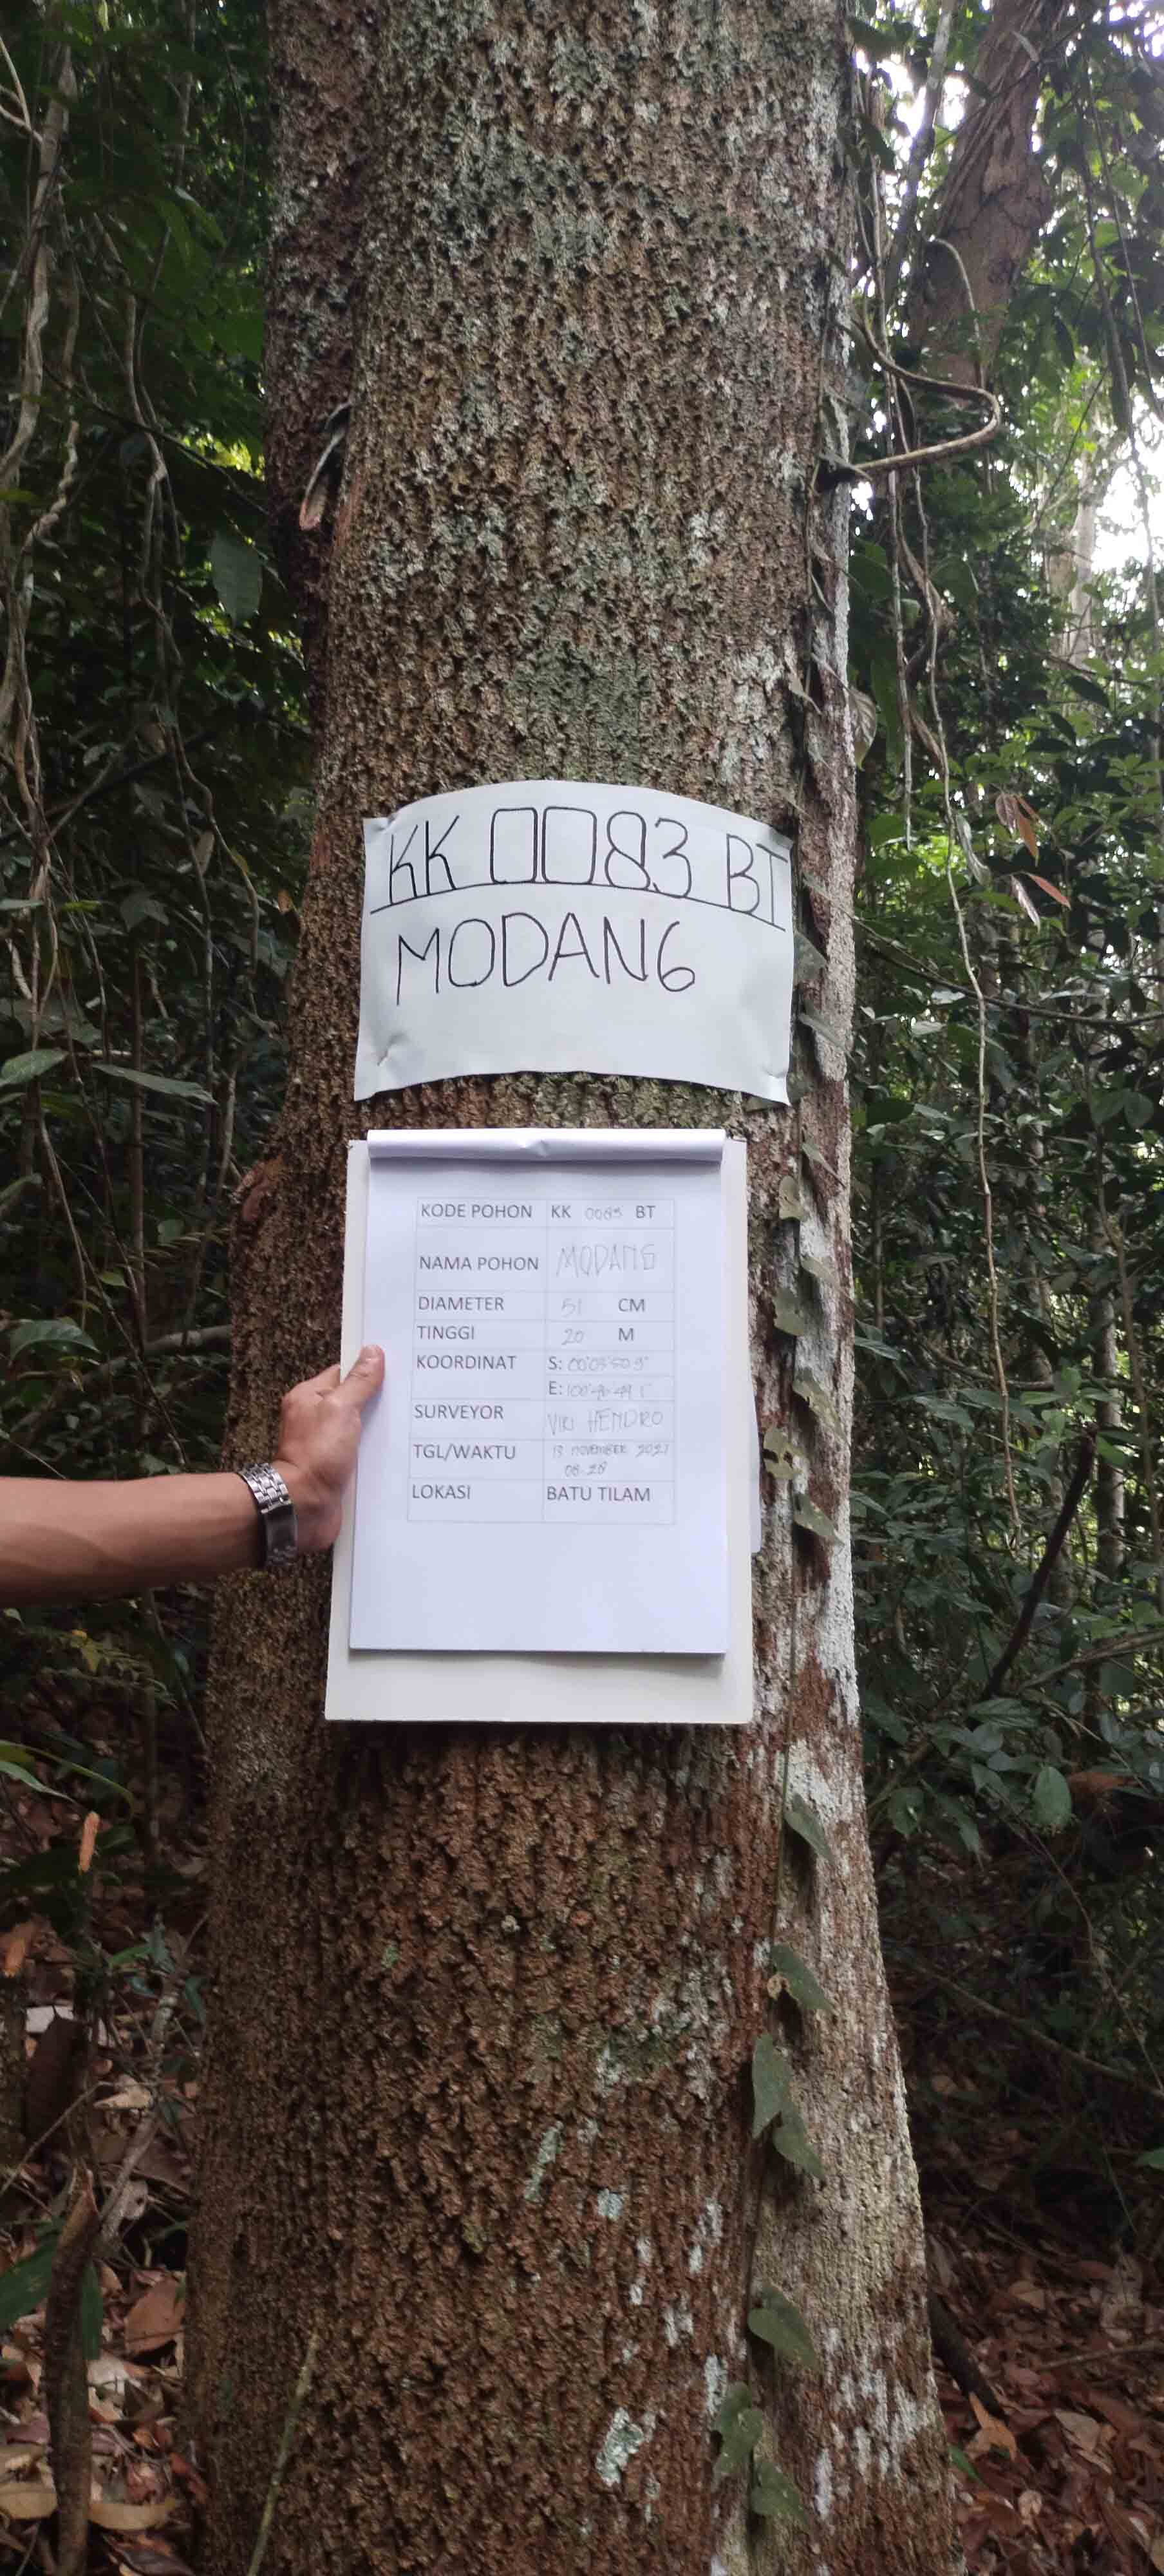 KK 0083 BT
MODANG
KODE POHON KK 0083 BT
NAMA POHON MODANG
DIAMETER 51 CM
TINGGI 20 M
KOORDINAT S: 00°03'50.9"
E:
SURVEYOR VIKI HENDRO
TGL/WAKTU 13 NOVEMBER 2021
08.28
LOKASI BATU TILAM